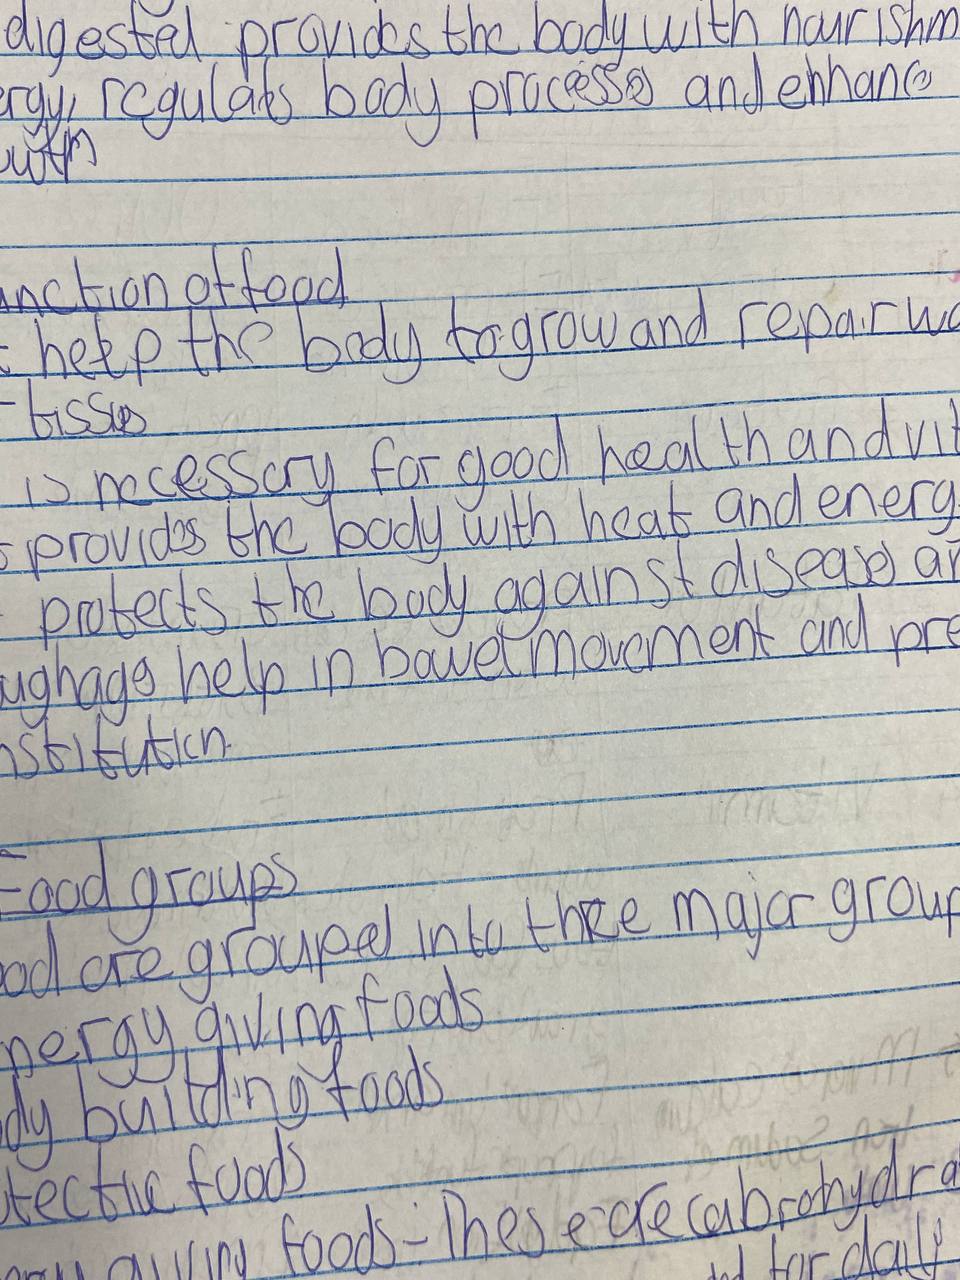 digested provides the body with nourishm
rgy, regulates body processes and enhance
owth
unction of food
t help the body to grow and repair wo
- tissues
is necessary for good health and vit
t provides the body with heat and energ
t protects the body against diseases an
ughage help in bowel movement and pre
nstitution
Food groups
ood are grouped into three major group
nergy giving foods
dy building foods
tective foods
ergy giving foods - These are cabrohydra
for daily